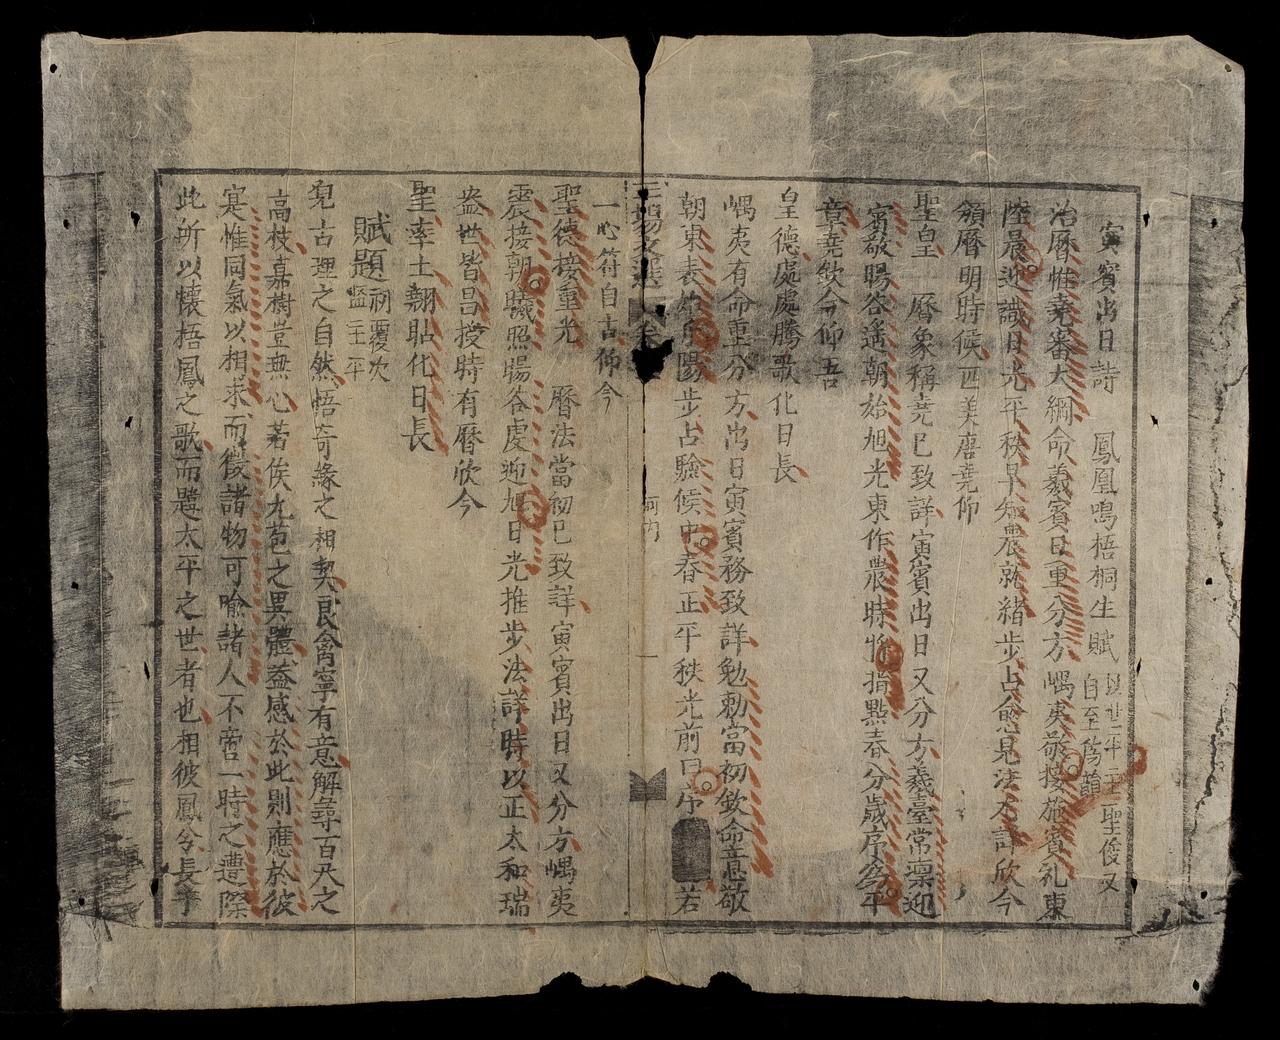 寅賓出日詩 鳳凰鳴梧桐生賦 以世平主聖俊又自至為韻
治曆惟堯審大綱命羲賓日重分方嵎夷敬接施賓礼東
陸晨迎識日光平秩早知農就緒步占愈見法尤詳欣今
頒曆明時候匹美唐堯仰
聖皇 曆象稱堯已致詳寅賓出日又分方羲臺常凜迎
賓敬暘谷遙朝始旭光東作農時將指點春分歲序為平
章堯欽今仰吾
皇德處處騰歌化日長
嵎夷有命重分方出日寅賓務致詳勉勅當初欽命意敬
朝東表始升陽步占驗候中春正平秩光前曰序 若
一心符自古仰今
聖德接重光 曆法當初已致詳寅賓出日又分方嵎夷
震接朝曦照暘谷虔迎旭日光推步法詳時以正太和瑞
盎世皆昌授時有曆欣今
聖率土翹瞻化日長
賦題 初覆次盤王平
見古理之自然悟奇緣之相契良禽寧有意解尋百尺之
高枝嘉樹豈無心若俟九苞之異體蓋感於此則應於彼
寔惟同氣以相求而徵諸物可喻諸人不啻一時之遭際
此所以懷梧鳳之歌而躋太平之世者也相彼鳳兮長于